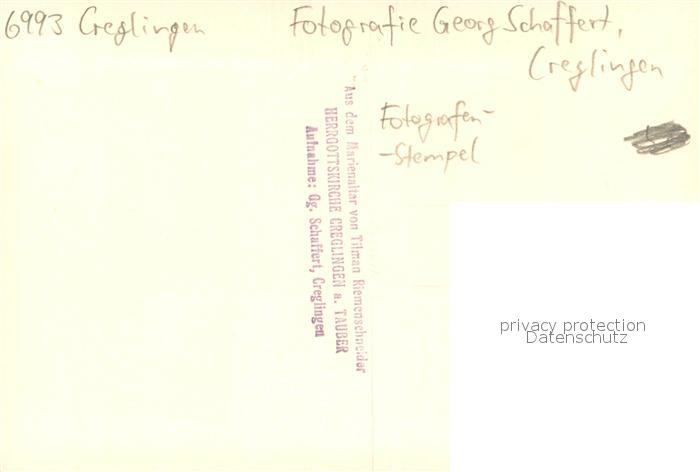 6993 Creglingen
Fotografie Georg Schaffert,
Creglingen
Fotografen-
-Stempel
"Aus dem Marienaltar von Tilman Riemenschneider
HERRGOTTSKIRCHE CREGLINGEN a. TAUBER
Aufnahme: Gg. Schaffert, Creglingen
privacy protection
Datenschutz